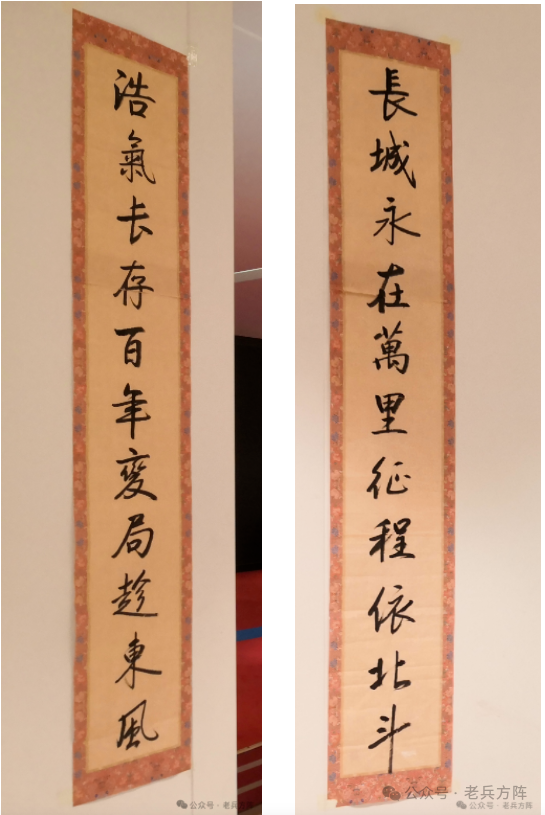 長城永在萬里征程依北斗
浩氣长存百年變局趁東風
公众号 · 老兵方阵
公众号 · 老兵方阵
公众号 · 老兵方阵